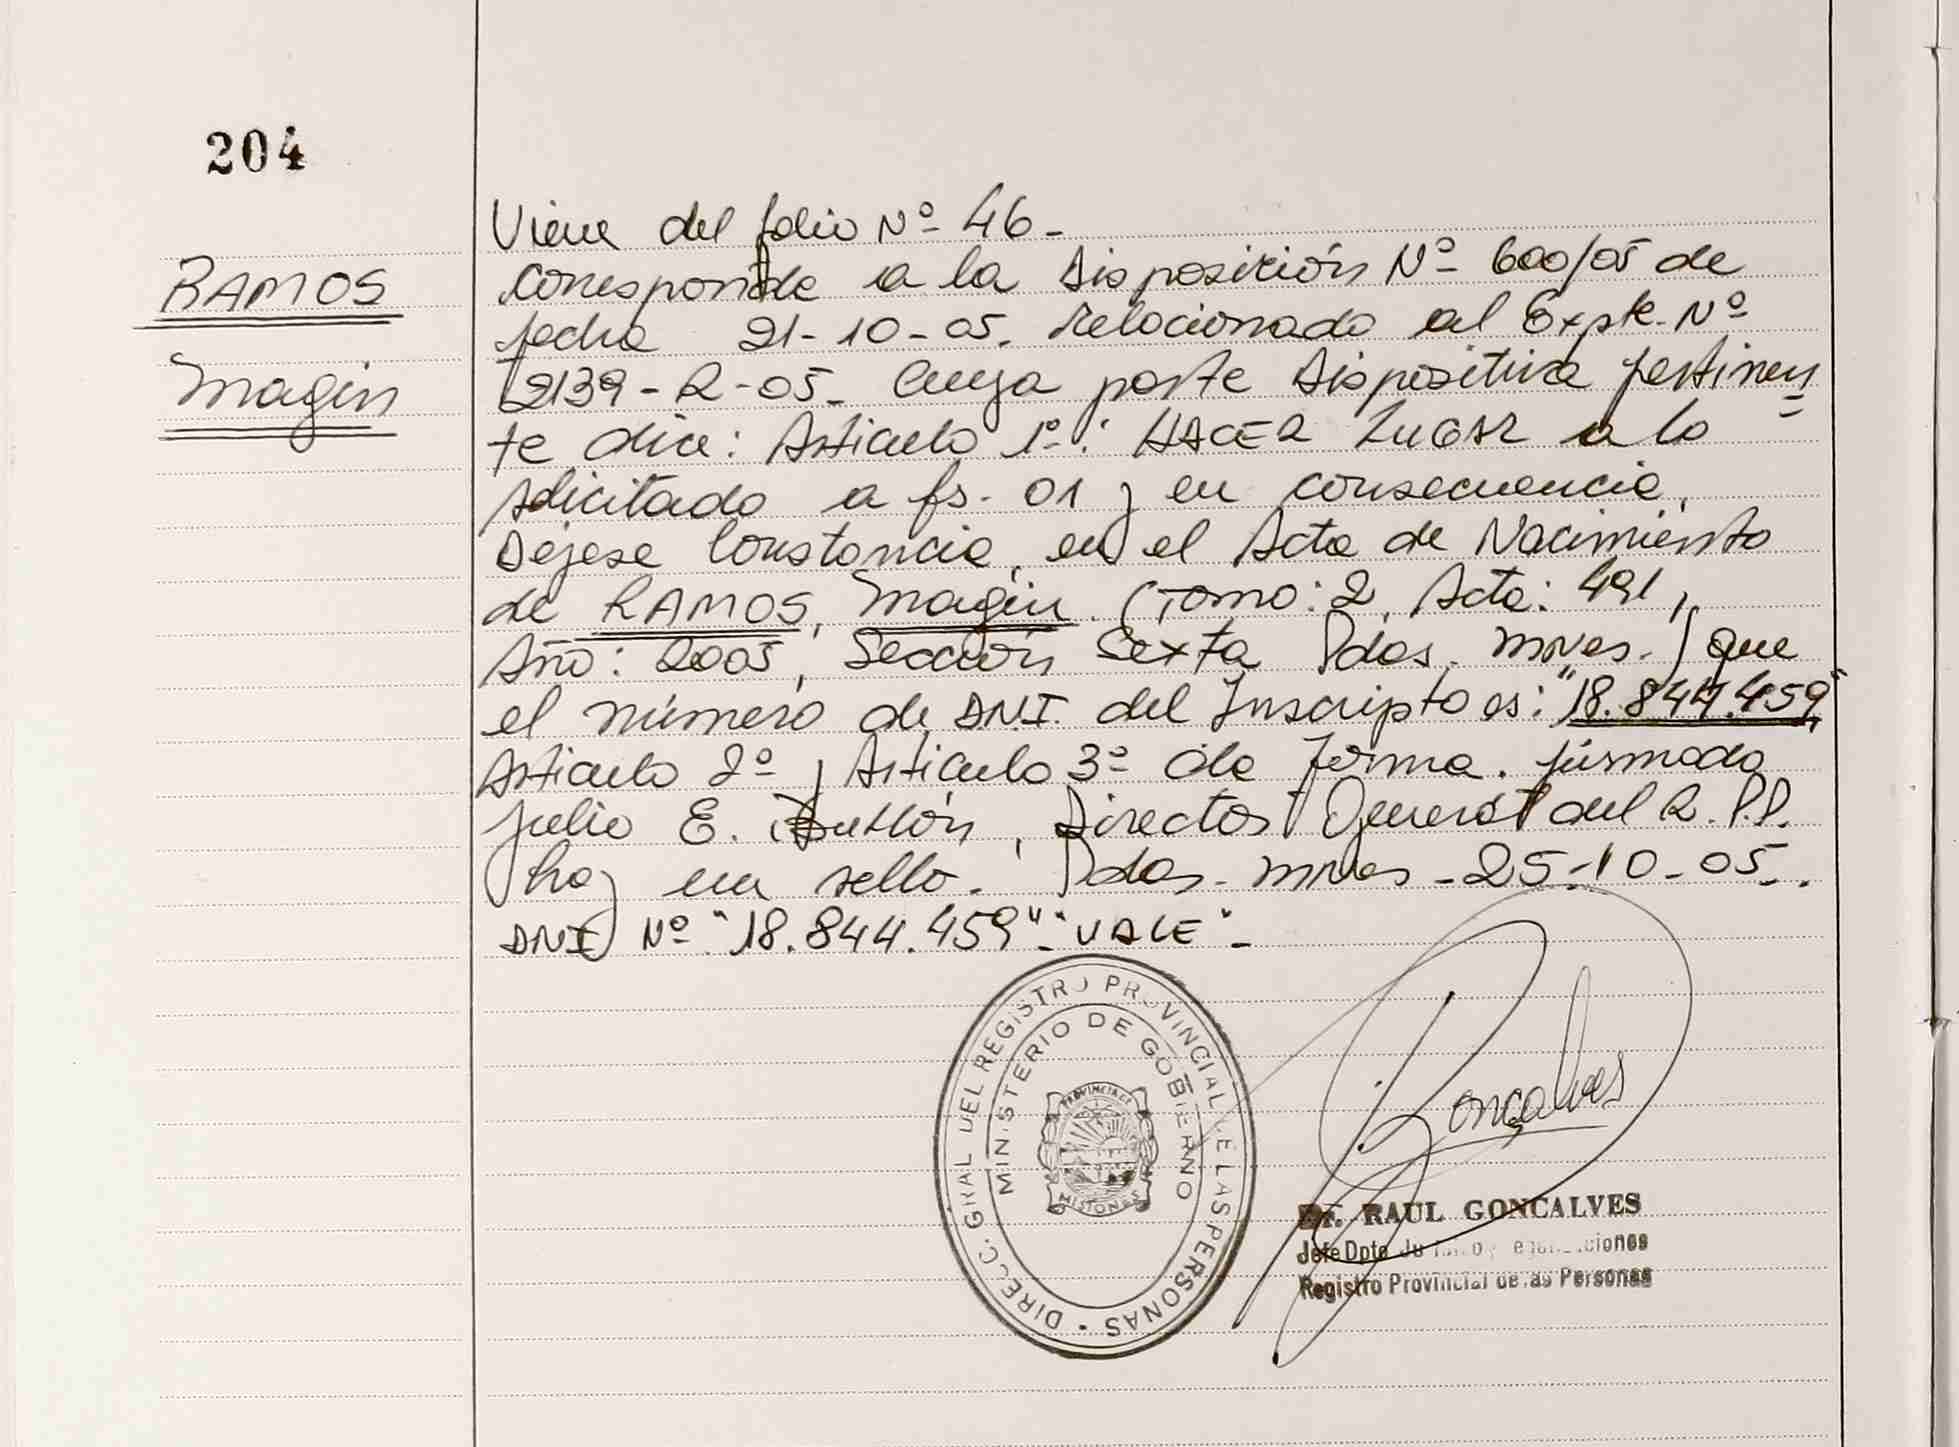 204
Viene del folio Nº 46-
RAMOS
Corresponde a la Disposición Nº 600/05 de
fecha 21-10-05. Relacionado al Expte. Nº
Magin
2139-R-05- Cuya parte dispositiva pertinen
te dice: Articulo 1º: HACER LUGAR a lo
solicitado a fs. 01 y en consecuencia,
Déjese Constancia, en el Acta de Nacimiento
de RAMOS, Magin. (Tomo: 2, Acta: 491,
Año: 2005, Sección Sexta Pdas. Mnes.) que
el número de DNI. del Inscripto es: "18.844.459"
Articulo 2º y Articulo 3º de forma. firmado
Julio E. Director General del R.P.P.
hay un sello. Pdas. Mnes - 25-10-05-.
DNI Nº "18.844.459"-"VALE"-
DIRECC. GRAL DEL REGISTRO PROVINCIAL DE LAS PERSONAS
MINISTERIO DE GOBIERNO
PROVINCIA DE
MISIONES
Goncalves
Dr. RAUL GONCALVES
Jefe Dpto
Registro Provincial de las Personas